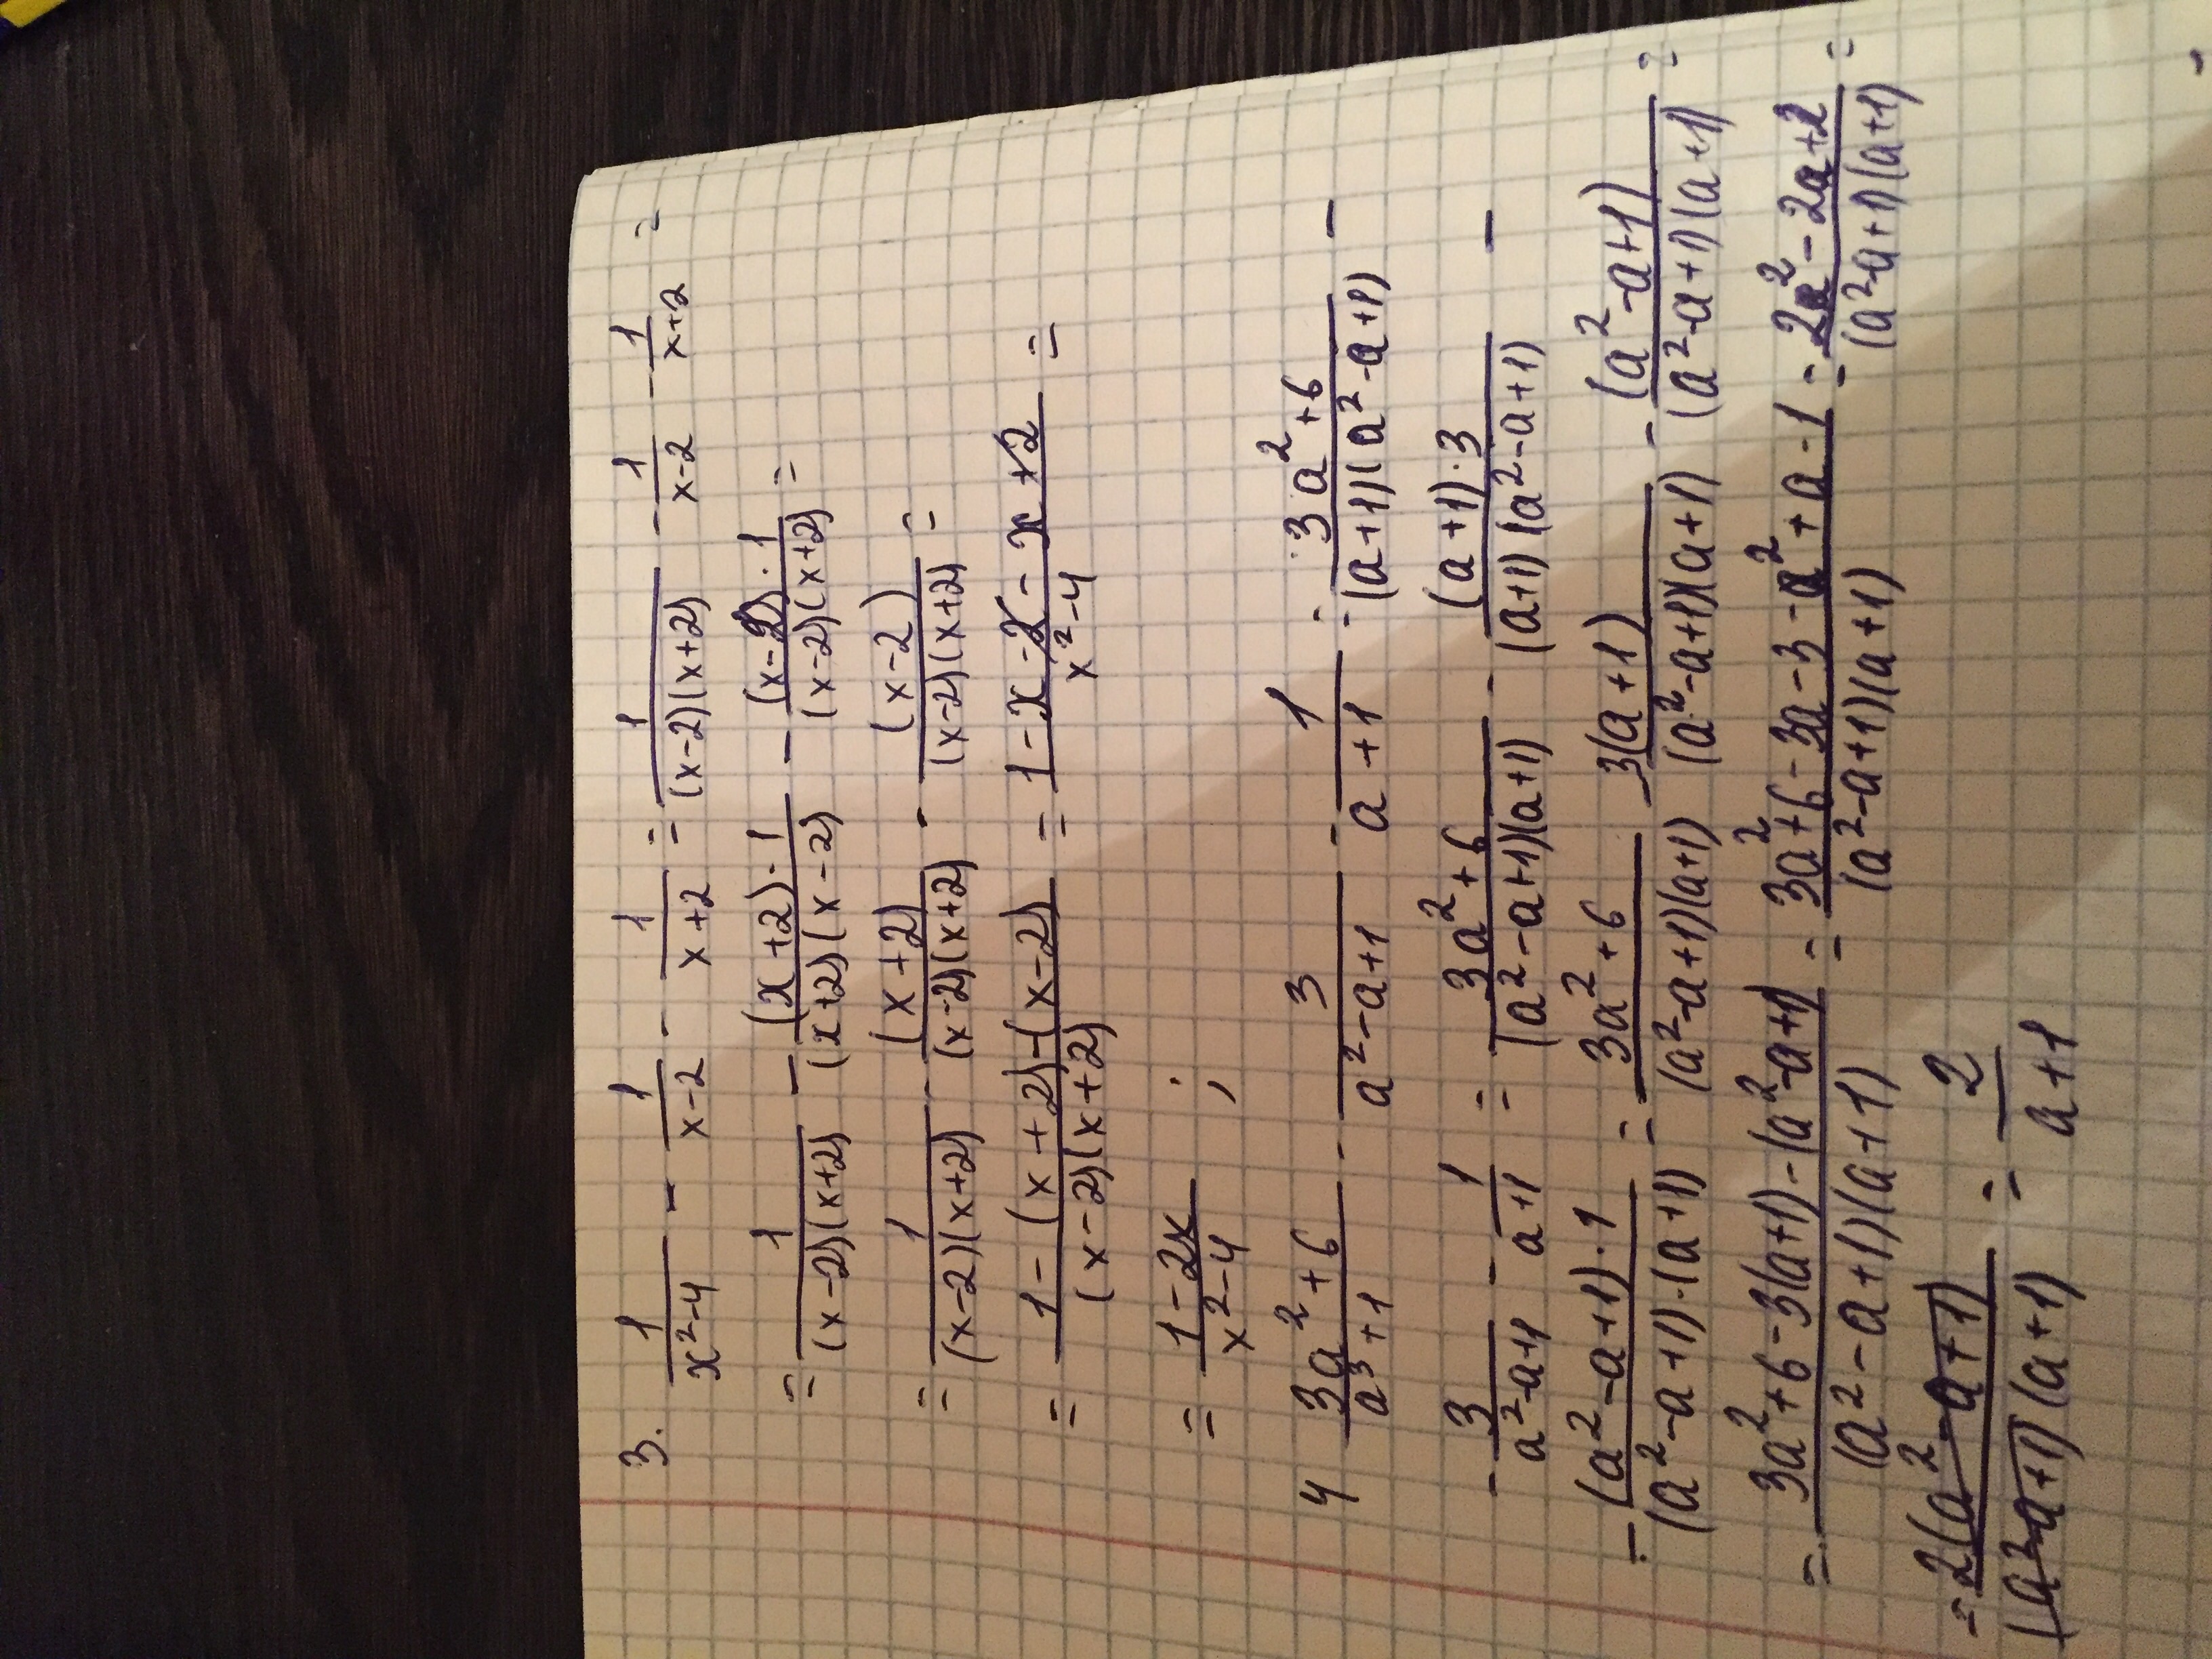 3. 1/(x²-4) - 1/(x-2) - 1/(x+2) = 1/((x-2)(x+2)) - 1/(x-2) - 1/(x+2) =
= 1/((x-2)(x+2)) - ((x+2)·1)/((x+2)(x-2)) - ((x-2)·1)/((x-2)(x+2)) =
= 1/((x-2)(x+2)) - (x+2)/((x-2)(x+2)) - (x-2)/((x-2)(x+2)) =
= (1-(x+2)-(x-2))/((x-2)(x+2)) = (1-x-2-x+2)/(x²-4) =
= (1-2x)/(x²-4) ;
4 (3a²+6)/(a³+1) - 3/(a²-a+1) - 1/(a+1) = (3a²+6)/((a+1)(a²-a+1)) -
- 3/(a²-a+1) - 1/(a+1) = (3a²+6)/((a²-a+1)(a+1)) - ((a+1)·3)/((a+1)(a²-a+1)) -
- ((a²-a+1)·1)/((a²-a+1)·(a+1)) = (3a²+6)/((a²-a+1)(a+1)) - 3(a+1)/((a²-a+1)(a+1)) - (a²-a+1)/((a²-a+1)(a+1)) =
= (3a²+6-3(a+1)-(a²-a+1))/((a²-a+1)(a+1)) = (3a²+6-3a-3-a²+a-1)/((a²-a+1)(a+1)) = (2a²-2a+2)/((a²-a+1)(a+1)) =
= 2(a²-a+1)/((a²-a+1)(a+1)) = 2/(a+1)